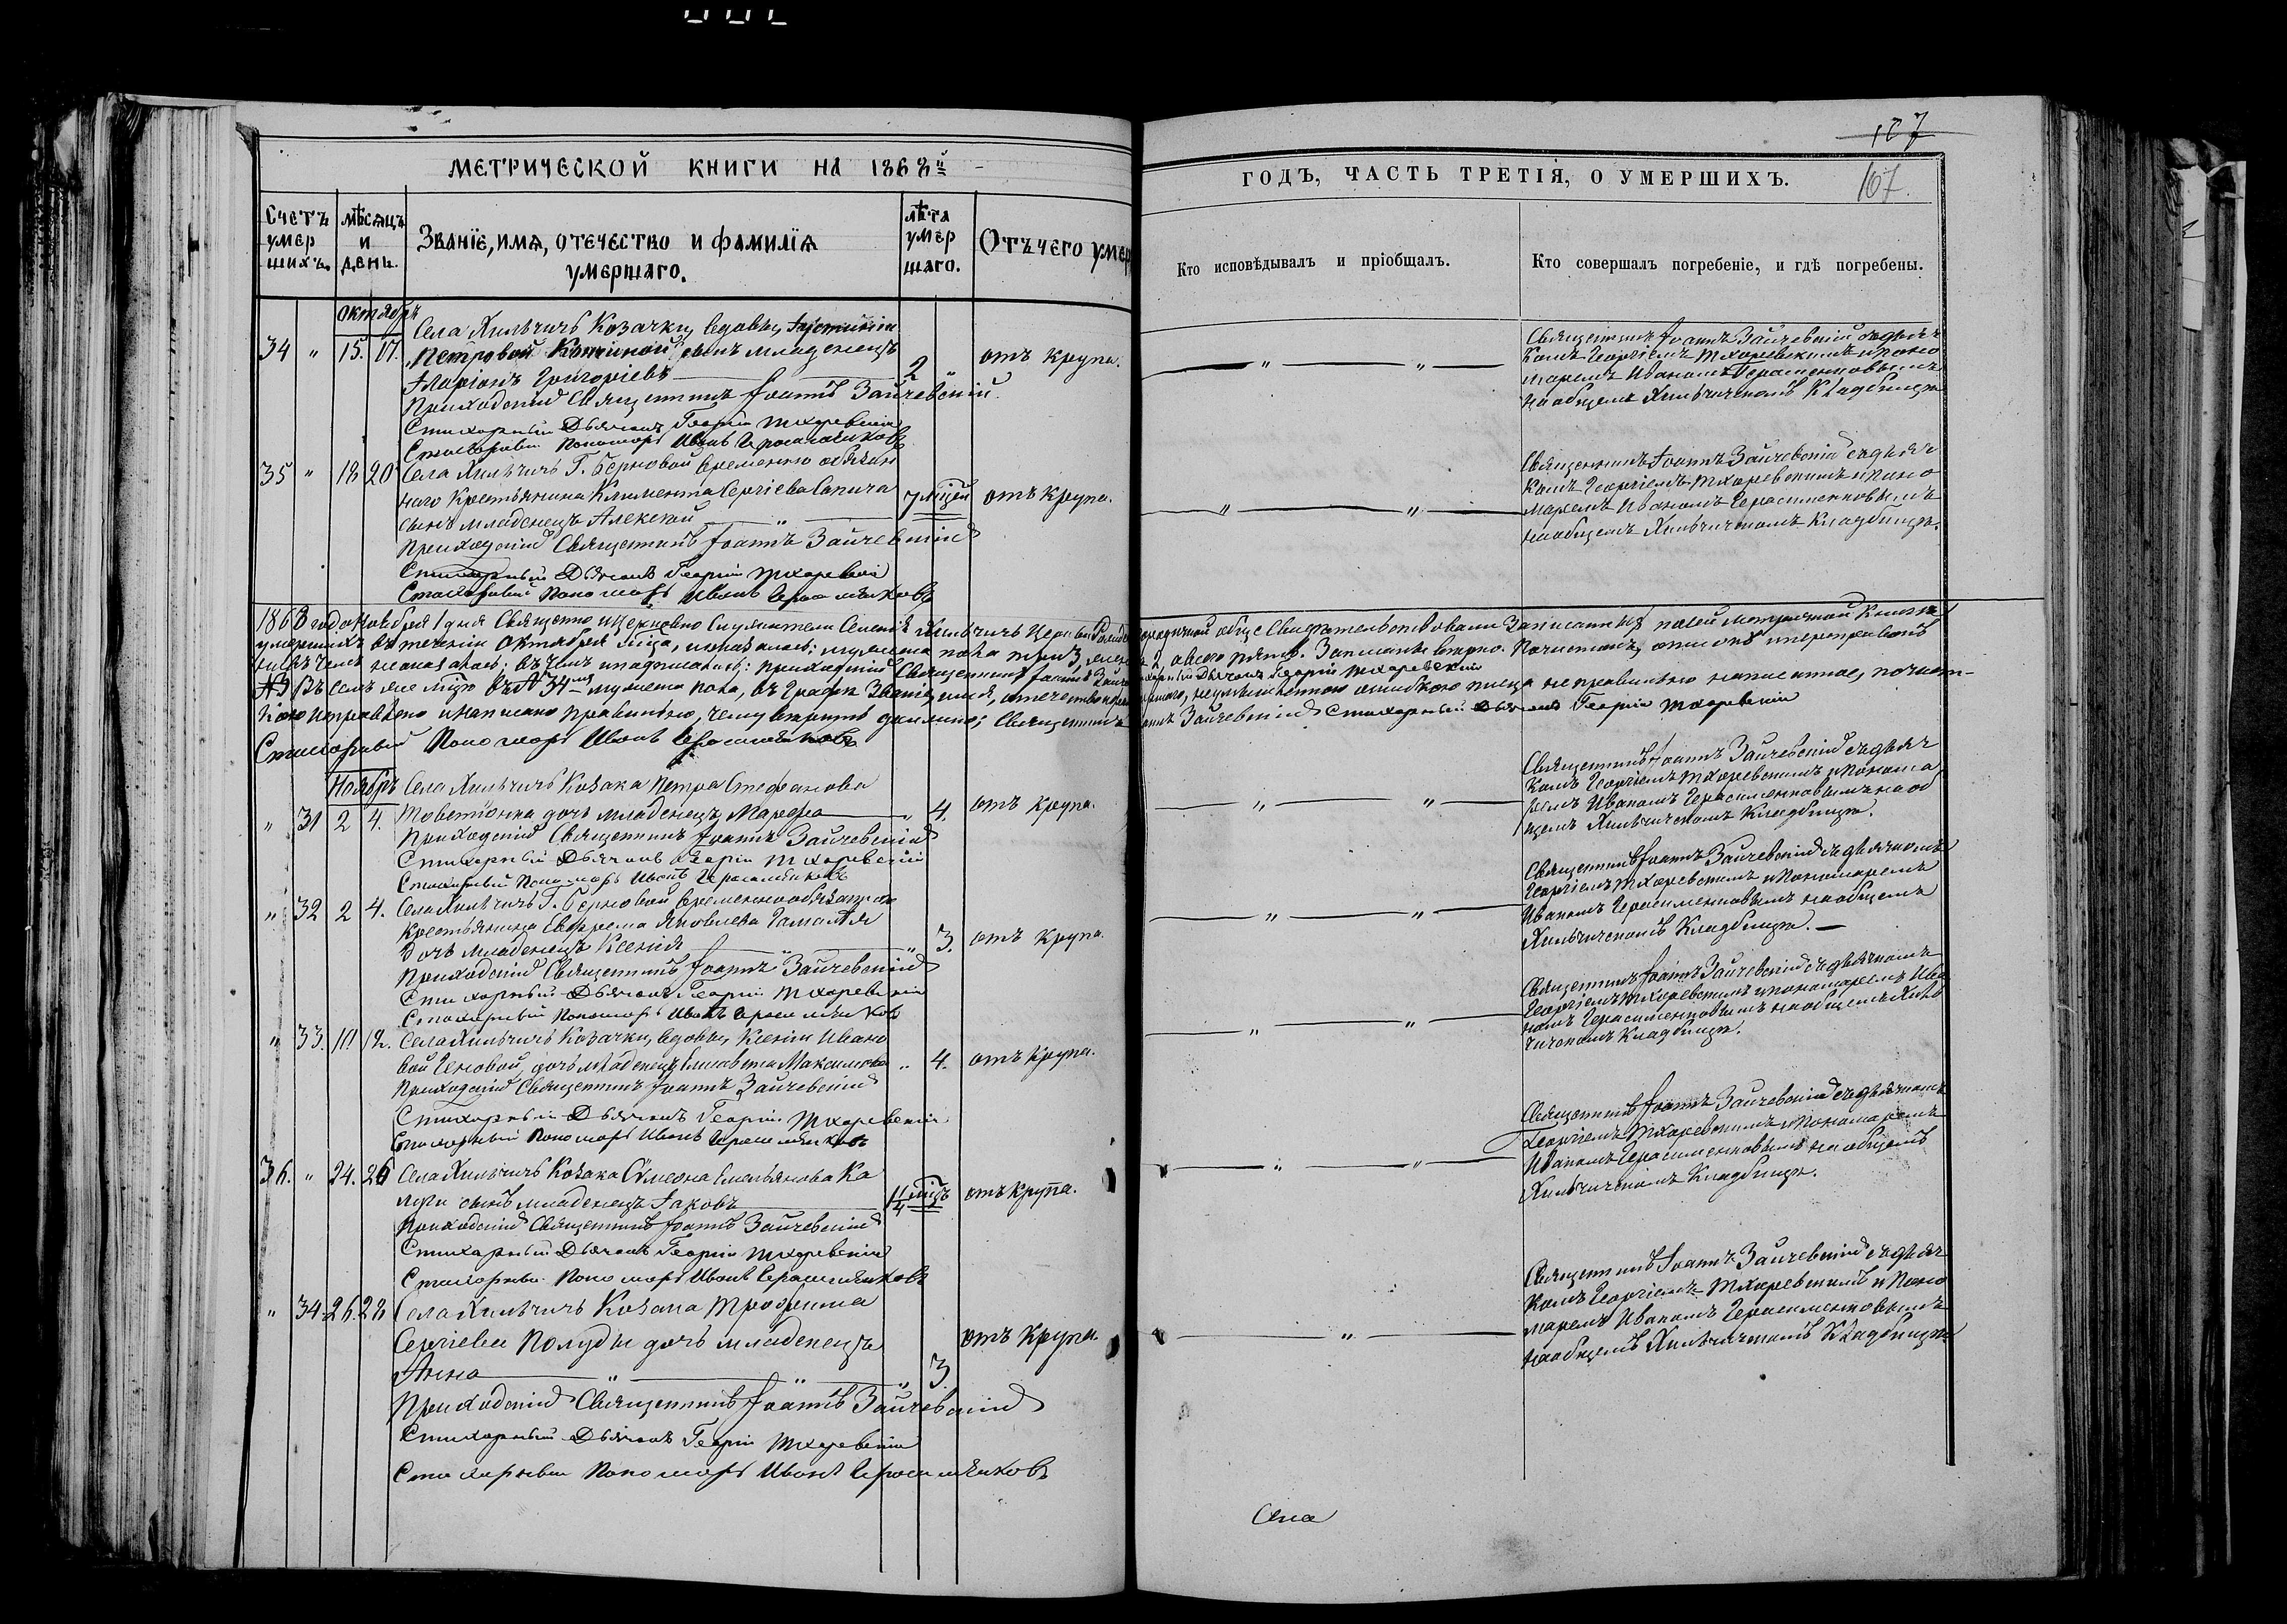 107
МЕТРИЧЕСКОЙ КНИГИ НА 1868й
ГОДЪ, ЧАСТЬ ТРЕТІЯ, О УМЕРШИХЪ.
167.
Счетъ умер шихъ.
мѣсяцъ и день.
Званіе, имя, отечество и фамилія умершаго.
лѣта умер шаго.
Отъ чего умер
Кто исповѣдывалъ и пріобщалъ.
Кто совершалъ погребеніе, и гдѣ погребены.
Октябрь
34 " 15. 17.
Села Хильчичъ Козачки, вдовы,
Петровой сынъ младенецъ
Григоріевъ 2 "
отъ крупа.
Приходскій Священникъ Іоаннъ Зайчевскій
Стихарный Дьячокъ Георгій Тхоревскій
Стихарный Пономарь Иванъ Герасименковъ
Священникъ Іоаннъ Зайчевскій съ дьяч
комъ Георгіемъ Тхоревскимъ и поно
маремъ Иваномъ Герасименковымъ
на общемъ Хильчичскомъ Кладбищѣ
35 " 18 20
Села Хильчичъ Г. Берковой временно обязан
наго Крестьянина Климента Сергіева Сапича
сынъ младенецъ Алексей
7 мцей
отъ крупа.
Приходскій Священникъ Іоаннъ Зайчевскій
Стихарный Дьячокъ Георгій Тхоревскій
Стихарный Пономарь Иванъ Герасименковъ
Священникъ Іоаннъ Зайчевскій съ дьяч
комъ Георгіемъ Тхоревскимъ и поно
маремъ Иваномъ Герасименковымъ
на общемъ Хильчичскомъ Кладбищѣ.
1868 года Ноября 1 дня Священно и Церковно Служители Села Хильчичъ свидѣтельствовали записанныхъ по сей Метрической Книгѣ
умершихъ въ теченіи Октября мѣца, и оказалось: мужеска пола три 3, 2, а всего пять. Записаны вѣрно.
приходскій Священникъ Іоаннъ Дьячокъ Георгій Тхоревскій
въ семъ же мцѣ въ № 34мъ мужеска пола, въ графѣ Званіе, имя, отечество неумышленною ошибкою писца неправильно написанное,
исправлено и написано правильно, Священникъ Зайчевскій Стихарный Дьячокъ Георгій Тхоревскій
Стихарный Пономарь Иванъ Герасименковъ
Ноябрь
" 31 2 4.
Села Хильчичъ Козака Петра Стефанова
дочь младенецъ Марфа " 4.
отъ крупа.
Приходскій Священникъ Іоаннъ Зайчевскій
Стихарный Дьячокъ Георгій Тхоревскій
Стихарный Пономарь Иванъ Герасименковъ
Священникъ Іоаннъ Зайчевскій съ дьяч
комъ Георгіемъ Тхоревскимъ и понома
ремъ Иваномъ Герасименковымъ на об
щемъ Хильчичскомъ Кладбищѣ.
" 32 2 4.
Села Хильчичъ Г. Берковой временнообязаннаго
Крестьянина Евфрема Яковлева Гамалѣя
дочь младенецъ Ксенія " 3.
отъ крупа.
Приходскій Священникъ Іоаннъ Зайчевскій
Стихарный Дьячокъ Георгій Тхоревскій
Стихарный Пономарь Иванъ Герасименковъ
Священникъ Іоаннъ Зайчевскій съ дьячкомъ
Георгіемъ Тхоревскимъ и Пономаремъ
Иваномъ Герасименковымъ на общемъ
Хильчичскомъ Кладбищѣ.
" 33. 10. 12.
Села Хильчичъ Козачки, вдовы, Ксеніи Ивано
вой дочь младенецъ Елисавета Максимова " 4.
отъ крупа.
Приходскій Священникъ Іоаннъ Зайчевскій
Стихарный Дьячокъ Георгій Тхоревскій
Стихарный Пономарь Иванъ Герасименковъ
Священникъ Іоаннъ Зайчевскій съ дьячкомъ
Георгіемъ Тхоревскимъ и пономаремъ Ива
номъ Герасименковымъ на общемъ Хиль
чичскомъ Кладбищѣ.
36. " 24. 26
Села Хильчичъ Козака Симеона Емельянова Ка
луги сынъ младенецъ Іаковъ
1 1/4 мцъ
отъ крупа.
Приходскій Священникъ Іоаннъ Зайчевскій
Стихарный Дьячокъ Георгій Тхоревскій
Стихарный Пономарь Иванъ Герасименковъ
Священникъ Іоаннъ Зайчевскій съ дьячкомъ
Георгіемъ Тхоревскимъ и Пономаремъ
Иваномъ Герасименковымъ на общемъ
Хильчичскомъ Кладбищѣ.
" 34. 26. 28
Села Хильчичъ Козака Трофима
Сергіева Полуды дочь младенецъ
Анна " 3
отъ крупа.
Приходскій Священникъ Іоаннъ Зайчевскій
Стихарный Дьячокъ Георгій Тхоревскій
Стихарный Пономарь Иванъ Герасименковъ
Священникъ Іоаннъ Зайчевскій съ дьяч
комъ Георгіемъ Тхоревскимъ и Поно
маремъ Иваномъ Герасименковымъ
на общемъ Хильчичскомъ Кладбищѣ